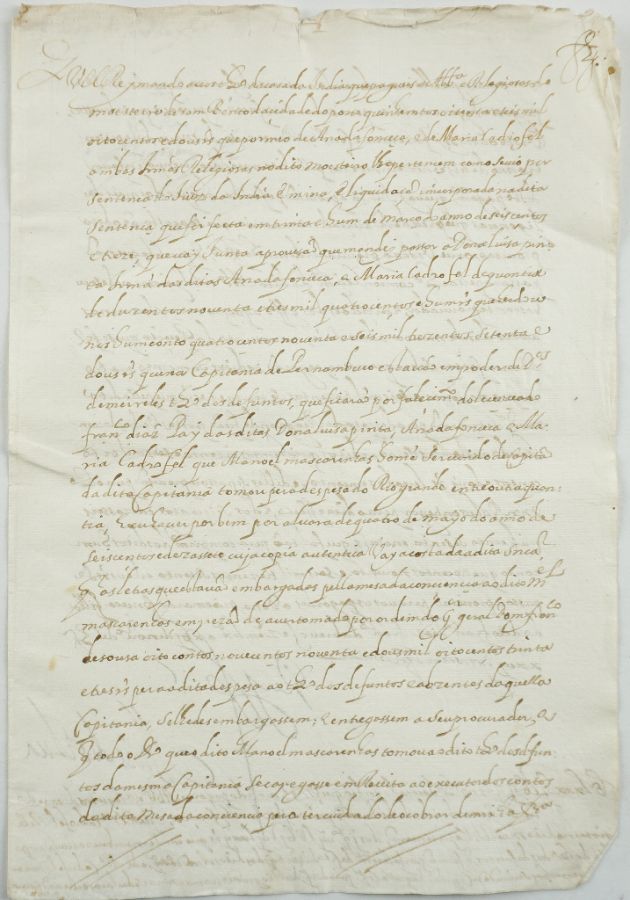 El Rej mando a vos da casa da India que pagueis Religiosas do
moesteiro de sam Bento da cidade do porto quinhentos oitenta e seis mil
oito centos e dous rs que por meo de Ana da fonceca, e de Maria Cadrofel
ambas Irmãs Religiosas no dito moesteiro lhe pertencem como se vio per
sentença do Juiz da India e mina, e liquidaçã incorporada na dita
sentença que foi feita em trinta e hum de março do anno de seiscentos
e treze, que vay Junta a provisã que mandei passar a Dona luisa pin
ta Irmã das ditas Ana da fonceca, e Maria Cadrofel de quantia
de duzentos noventa e tres mil quatrocentos e hum rs que he do
hum conto quatrocentos noventa e seis mil trezentos setenta e
dous rs que na Capitania de Pernambuco estavão em poder de
de meireles tro dos defuntos, que ficarã por falecimto do
franco diaz Pay das ditas Dona luisa pinta, Ana da fonceca e Ma
ria Cadrofel que Manoel mascarenhas home servindo de Capitã
da dita Capitania tomou pera despesa do Rio grande entre outra quan:
tia, E eu houver por bem por alvara de quatro de mayo do anno de
seiscentos e dezassete cuja copia autentica vay acostada a dita
q as letras que estavã embargadas pella mesa da conciencia ao dito Mel
mascarenhas em rezã de aver tomado por ordem do Gor geral Dom franco
de sousa oito contos novecentos noventa e dous mil oitocentos trinta
e tres rs pera a dita despesa ao tro dos defuntos e auzentes daquella
Capitania, se lhe desembargassem; e entregassem a seu procurador, e
q todo o dro que o dito Manoel mascarenhas tomou ao dito tro dos defun
tos da mesma Capitania se carregasse em Receita ao executor dos contos
da dita Mesa da conciencia pera ter cuidado de o cobrar de minha